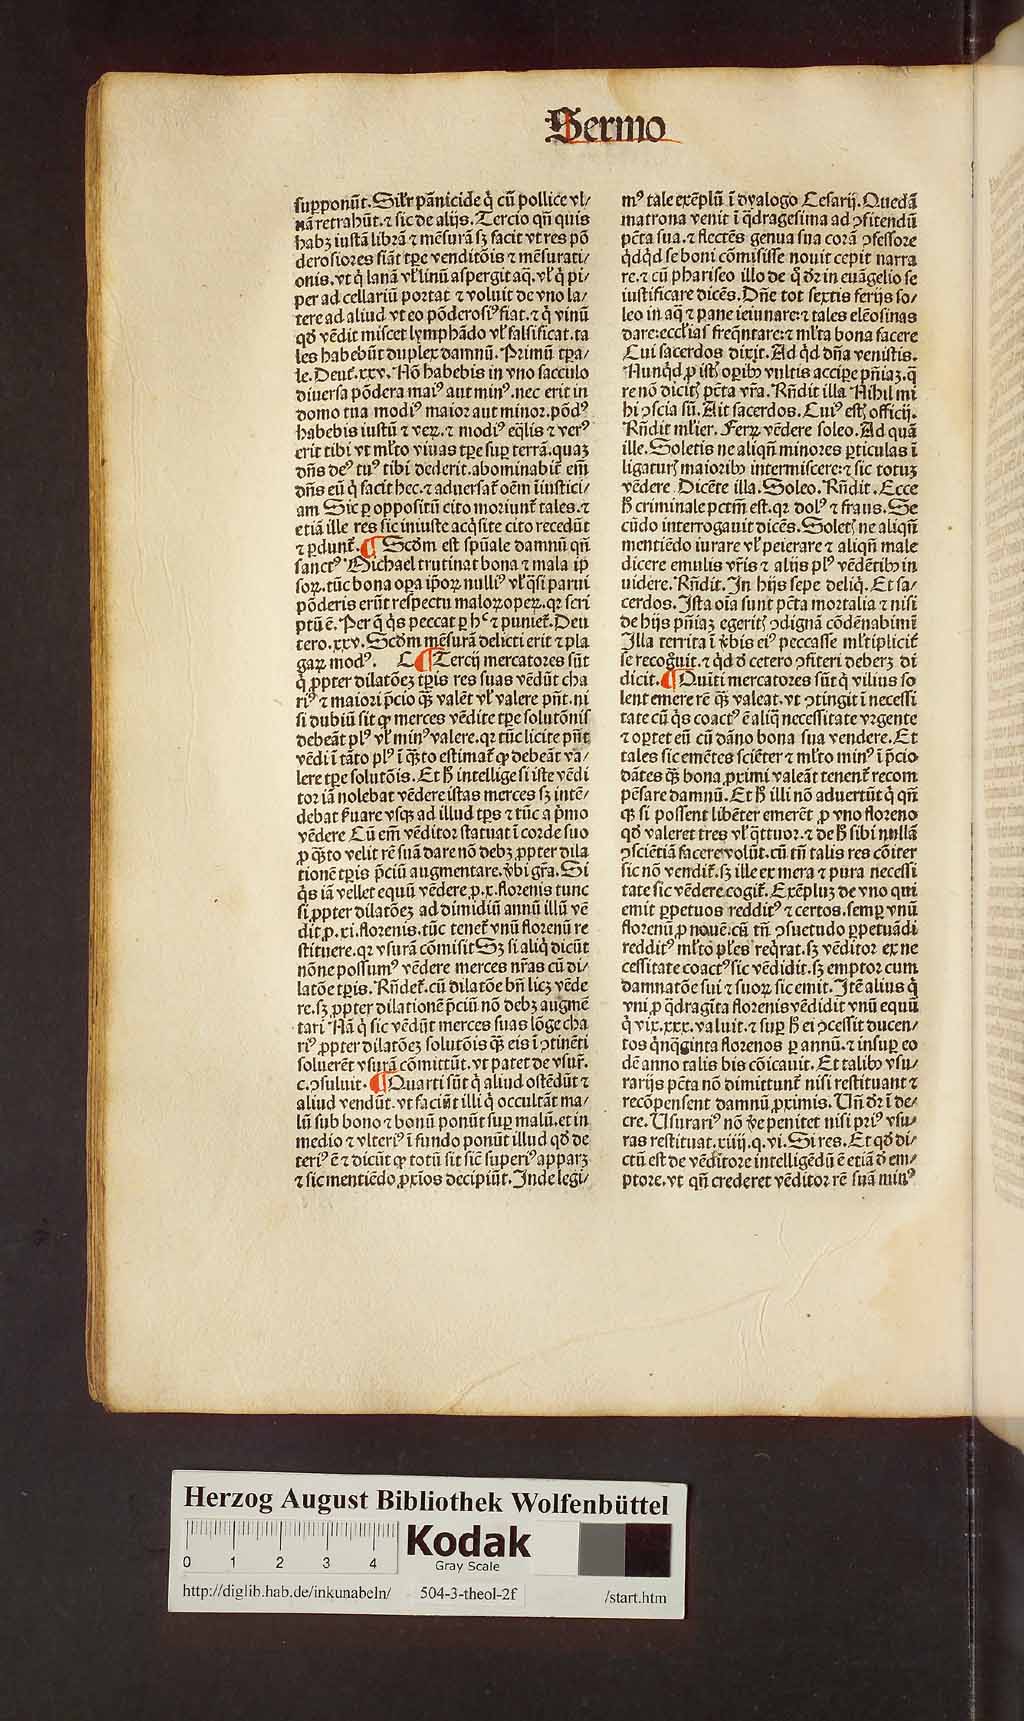 Sermo
supponūt. Silr pānicide q̄ cū pollice vl/
nā retrahūt. ⁊ sic de alijs. Tercio qn̄ quis
habꝫ iustā librā ⁊ mēsurā sꝫ facit vt res pō
derosiores fiāt tꝑe venditōis ⁊ mēsurati/
onis. vt q̇ lanā vl̓ linū aspergit aq̄. vl̓ q̇ pi/
per ad cellariū portat ⁊ voluit de vno la/
tere ad aliud vt eo pōderosiꝰ fiat. ⁊ q̇ vinū
qd̓ vēdit miscet lymphādo vl̓ falsificat. ta
les habebūt duplex damnū. Primū tꝑa/
le. Deut̓. xxv. Nō habebis in vno sacculo
diuersa pōdera maiꝰ aut minꝰ. nec erit in
domo tua modiꝰ maior aut minor. pōdꝰ
habebis iustū ⁊ veꝝ. ⁊ modiꝰ eq̄lis ⁊ verꝰ
erit tibi vt ml̓to viuas tꝑe suꝑ terrā. quaꝫ
dn̄s deꝰ tuꝰ tibi dederit. abominabit̓ em̄
dn̄s eū q̇ facit hec. ⁊ aduersat̓ oēm iīustici/
am Sic ꝑ oppositū cito moriunt̓ tales. ⁊
etiā ille res sic iniuste acq̇site cito recedūt
⁊ ꝑdunt̓. ¶ Scd̓m est spūale damnū qn̄
sanctꝰ Michael trutinat bona ⁊ mala ip̄
soꝝ. tūc bona oꝑa ip̄oꝝ nulliꝰ vl̓ q̄si parui
pōderis erūt respectu maloꝝ oꝑeꝝ. qꝛ scri
ptū ē. Per q̄ q̇s peccat ꝑ hᶜ ⁊ puniet̓. Deu
tero. xxv. Scd̓m mēsurā delicti erit ⁊ pla
gaꝝ modꝰ. C ¶ Tercij mercatores sūt
q̇ ꝓpter dilatōeꝫ tꝑis res suas vēdūt cha
riꝰ ⁊ maiori p̄cio qꝫ valēt vl̓ valere pn̄t. ni
si dubiū sit ꝙ merces vēdite tꝑe solutōnis
debeāt plꝰ vl̓ minꝰ valere. qꝛ tūc licite pn̄t
vēdi ī tāto plꝰ ī q̄ꝫto estimat̓ ꝙ debeāt va/
lere tꝑe solutōis. Et h̓ intellige si iste vēdi
tor iā nolebat vēdere istas merces sꝫ intē/
debat ẜuare vsqꝫ ad illud tꝑs ⁊ tūc a p̄mo
vēdere Cū em̄ vēditor statuat ī corde suo
ꝓ q̄ꝫto velit rē suā dare nō debꝫ ꝓpter dila
tionē tꝑis p̄ciū augmentare. v̓bi gr̄a. Si
q̇s iā vellet equū vēdere. ꝓ. x. florenis tunc
si ꝓpter dilatōeꝫ ad dimidiū annū illū vē
dit ꝓ. xi. florenis. tūc tenet̓ vnū florenū re
stituere. qꝛ vsurā cōmisit Sꝫ si aliq̇ dicūt
nōne possumꝰ vēdere merces nr̄as cū di/
latōe tꝑis. Rn̄det̓. cū dilatōe bn̄ licꝫ vēde
re. sꝫ ꝓpter dilationē p̄ciū nō debꝫ augmē
tari Nā q̇ sic vēdūt merces suas lōge cha
riꝰ ꝓpter dilatōeꝫ solutōis qꝫ eis ī ꝯtinēti
soluerēt vsurā cōmittūt. vt patet de vsur̓.
c. ꝯsuluit. ¶ Quarti sūt q̇ aliud ostēdūt ⁊
aliud vendūt. vt faciūt illi q̇ occultāt ma/
lū sub bono ⁊ bonū ponūt suꝑ malū. et in
medio ⁊ vlteriꝰ ī fundo ponūt illud qd̓ de
teriꝰ ē ⁊ dicūt ꝙ totū sit sic̄ superiꝰ apparꝫ
⁊ sic mentiēdo ꝓxīos decipiūt. Inde legi/
mꝰ tale exēplū ī dyalogo Cesarij. Quedā
matrona venit ī q̄dragesima ad ꝯfitendū
pctā sua. ⁊ flectēs genua sua corā ꝯfessore
q̇dq̇d se boni cōmisisse nouit cepit narra
re. ⁊ cū phariseo illo de q̇ dr̄ in euāgelio se
iustificare dicēs. Dn̄e tot sextis ferijs so/
leo in aq̄ ⁊ pane ieiunare: ⁊ tales elēosinas
dare: eccl̓ias freq̄ntare: ⁊ ml̓ta bona facere
Cui sacerdos dixit. Ad qd̓ dn̄a venistis.
Nunq̇d ꝓ isꝭ oꝑibꝰ vultis accipe pn̄iaꝫ. q̄
re nō dicitꝭ pctā vr̄a. Rn̄dit illa Nihil mi
hi ꝯscia sū. Ait sacerdos. Cuiꝰ estꝭ officij.
Rn̄dit ml̓ier. Feꝝ vēdere soleo. Ad quā
ille. Soletis ne aliqn̄ minores ꝑticulas ī
ligaturꝭ maioribꝰ intermiscere: ⁊ sic totuꝫ
vēdere Dicēte illa. Soleo. Rn̄dit. Ecce
h̓ criminale pctm̄ est. qꝛ dolꝰ ⁊ fraus. Se
cūdo interrogauit dicēs. Soletꝭ ne aliqn̄
mentiēdo iurare vl̓ peierare ⁊ aliqn̄ male
dicere emulis vr̄is ⁊ alijs plꝰ vēdētibꝰ in
uidere. Rn̄dit. In hijs sepe deliq̇. Et sa/
cerdos. Ista oīa sunt pctā mortalia ⁊ nisi
de hijs pn̄iaꝫ egeritꝭ ꝯdignā cōdēnabimī
Illa territa ī v̓bis eiꝰ peccasse ml̓tiplicit̓
se recog̊uit. ⁊ qd̓ d̓ cetero ꝯfiteri deberꝫ di
dicit. ¶ Quīti mercatores sūt q̇ vilius so
lent emere rē qꝫ valeat. vt ꝯtingit ī necessi
tate cū q̇s coactꝰ ē aliq̄ necessitate vrgente
⁊ oꝑtet eū cū dāno bona sua vendere. Et
tales sic emētes sciēter ⁊ ml̓to minꝰ ī p̄cio
dātes qꝫ bona ꝓximi valeāt tenent̓ recom
pēsare damnū. Et h̓ illi nō aduertūt q̇ qn̄
qꝫ si possent libēter emerēt ꝓ vno floreno
qd̓ valeret tres vl̓ q̄ttuor. ⁊ de h̓ sibi nullā
ꝯsciētiā facere volūt. cū tn̄ talis res cōiter
sic nō vendit̓. sꝫ ille ex mera ⁊ pura necessi
tate sic vēdere cogit̓. Exēpluꝫ de vno qui
emit ꝑpetuos redditꝰ ⁊ certos. semꝑ vnū
florenū ꝓ nouē. cū tn̄ ꝯsuetudo ꝑpetuādi
redditꝰ ml̓to pl̓es req̇rat. sꝫ vēditor ex ne
cessitate coactꝰ sic vēdidit. sꝫ emptor cum
damnatōe sui ⁊ suoꝝ sic emit. Itē alius q̇
vni ꝓ q̄dragīta florenis vēdidit vnū equū
q̇ vix. xxx. valuit. ⁊ suꝑ h̓ ei ꝯcessit ducen/
tos q̇nq̄ginta florenos ꝑ annū. ⁊ insuꝑ eo
dē anno talis bis cōicauit. Et talibꝰ vsu/
rarijs pctā nō dimittunt̓ nisi restituant ⁊
recōpensent damnū ꝓximis. Vn̄ dr̄ ī de/
cre. Usurariꝰ nō v̓e penitet nisi priꝰ vsu/
ras restituat. xiiij. q. vi. Si res. Et qd̓ di/
ctū est de vēditore intelligēdū ē etiā d̓ em/
ptore. vt qn̄ crederet vēditor rē suā minꝰ
Herzog August Bibliothek Wolfenbüttel
0 1 2 3 4
Kodak
Gray Scale
http://diglib.hab.de/inkunabeln/ 504-3-theol-2f /start.htm